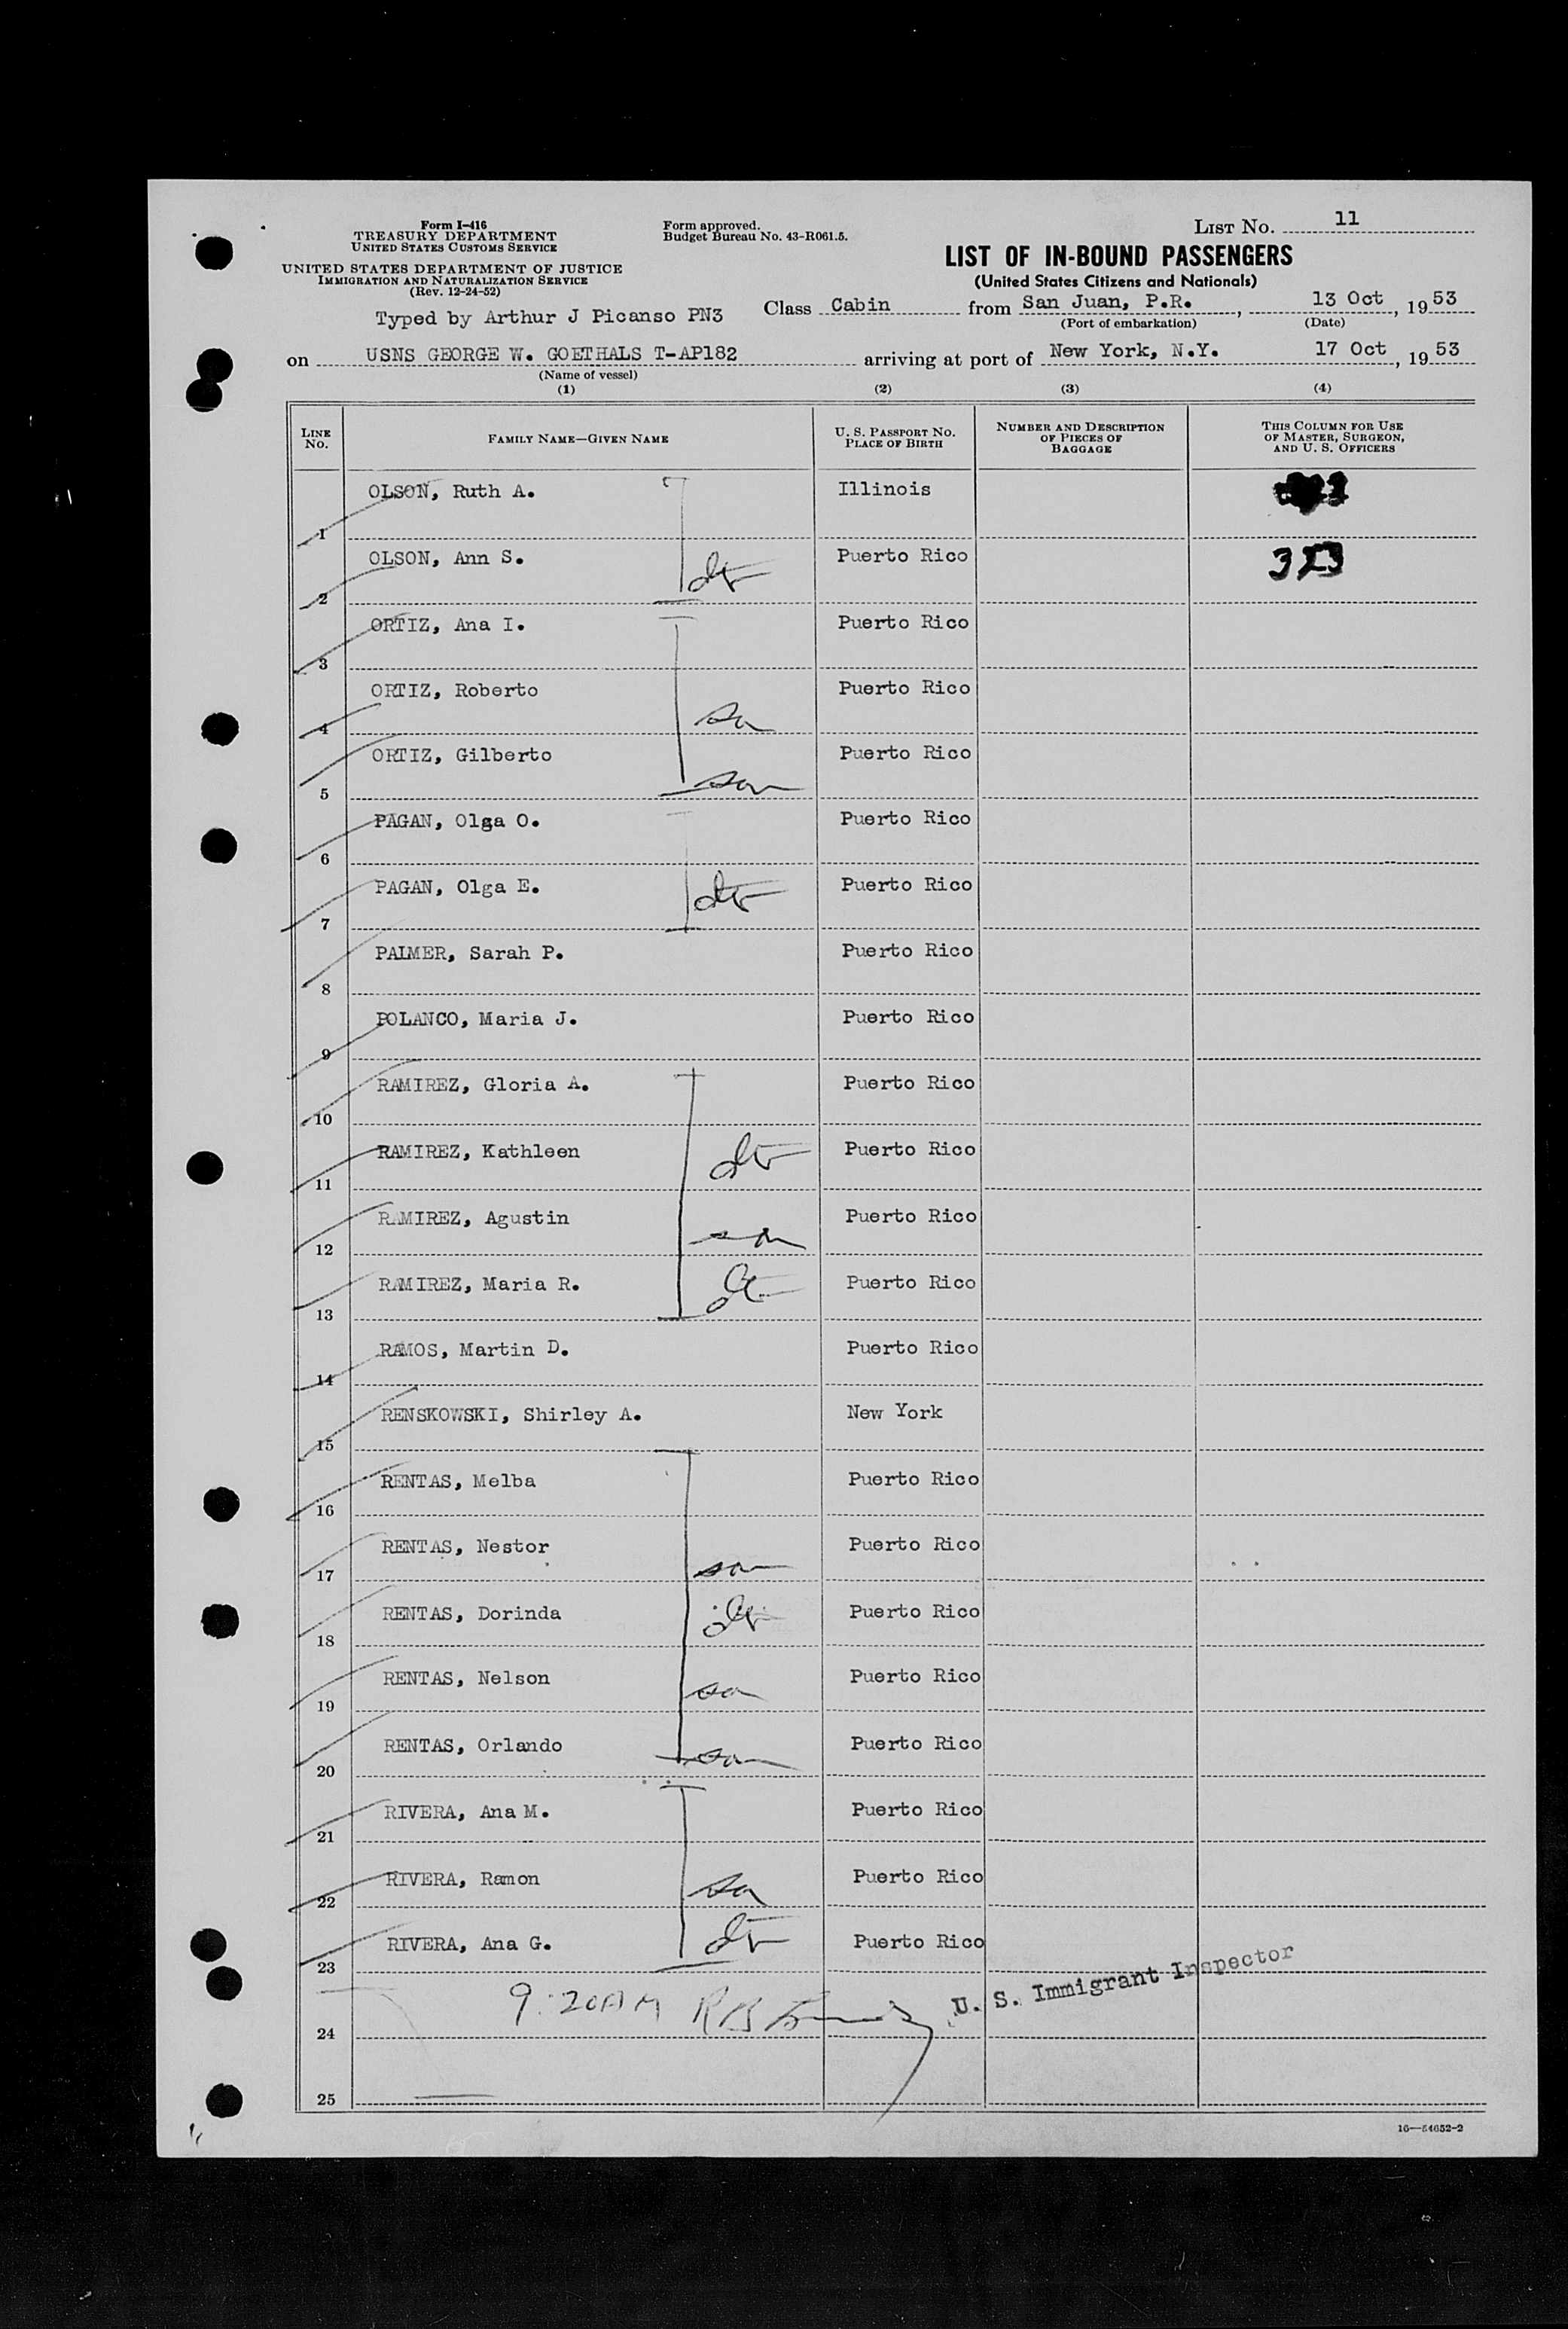 Form I-416
TREASURY DEPARTMENT
UNITED STATES CUSTOMS SERVICE
UNITED STATES DEPARTMENT OF JUSTICE
IMMIGRATION AND NATURALIZATION SERVICE
(Rev. 12-24-52)
Typed by Arthur J Picanso PN3
Form approved.
Budget Bureau No. 43-R061.5.
LIST NO. 11
LIST OF IN-BOUND PASSENGERS
(United States Citizens and Nationals)
Class Cabin from San Juan, P.R., 13 Oct, 1953
(Port of embarkation) (Date)
on USNS GEORGE W. GOETHALS T-AP182 arriving at port of New York, N.Y. 17 Oct, 1953
(Name of vessel)
(1) (2) (3) (4)
LINE NO. FAMILY NAME—GIVEN NAME U. S. PASSPORT NO. PLACE OF BIRTH NUMBER AND DESCRIPTION OF PIECES OF BAGGAGE THIS COLUMN FOR USE OF MASTER, SURGEON, AND U. S. OFFICERS
1 OLSON, Ruth A. Illinois
2 OLSON, Ann S. dtr Puerto Rico 323
3 ORTIZ, Ana I. Puerto Rico
4 ORTIZ, Roberto son Puerto Rico
5 ORTIZ, Gilberto son Puerto Rico
6 PAGAN, Olga O. Puerto Rico
7 PAGAN, Olga E. dtr Puerto Rico
8 PALMER, Sarah P. Puerto Rico
9 POLANCO, Maria J. Puerto Rico
10 RAMIREZ, Gloria A. Puerto Rico
11 RAMIREZ, Kathleen dtr Puerto Rico
12 RAMIREZ, Agustin son Puerto Rico
13 RAMIREZ, Maria R. dtr Puerto Rico
14 RAMOS, Martin D. Puerto Rico
15 RENSKOWSKI, Shirley A. New York
16 RENTAS, Melba Puerto Rico
17 RENTAS, Nestor son Puerto Rico
18 RENTAS, Dorinda dtr Puerto Rico
19 RENTAS, Nelson son Puerto Rico
20 RENTAS, Orlando son Puerto Rico
21 RIVERA, Ana M. Puerto Rico
22 RIVERA, Ramon son Puerto Rico
23 RIVERA, Ana G. dtr Puerto Rico
9:20AM U. S. Immigrant Inspector
24
25
16—54652-2